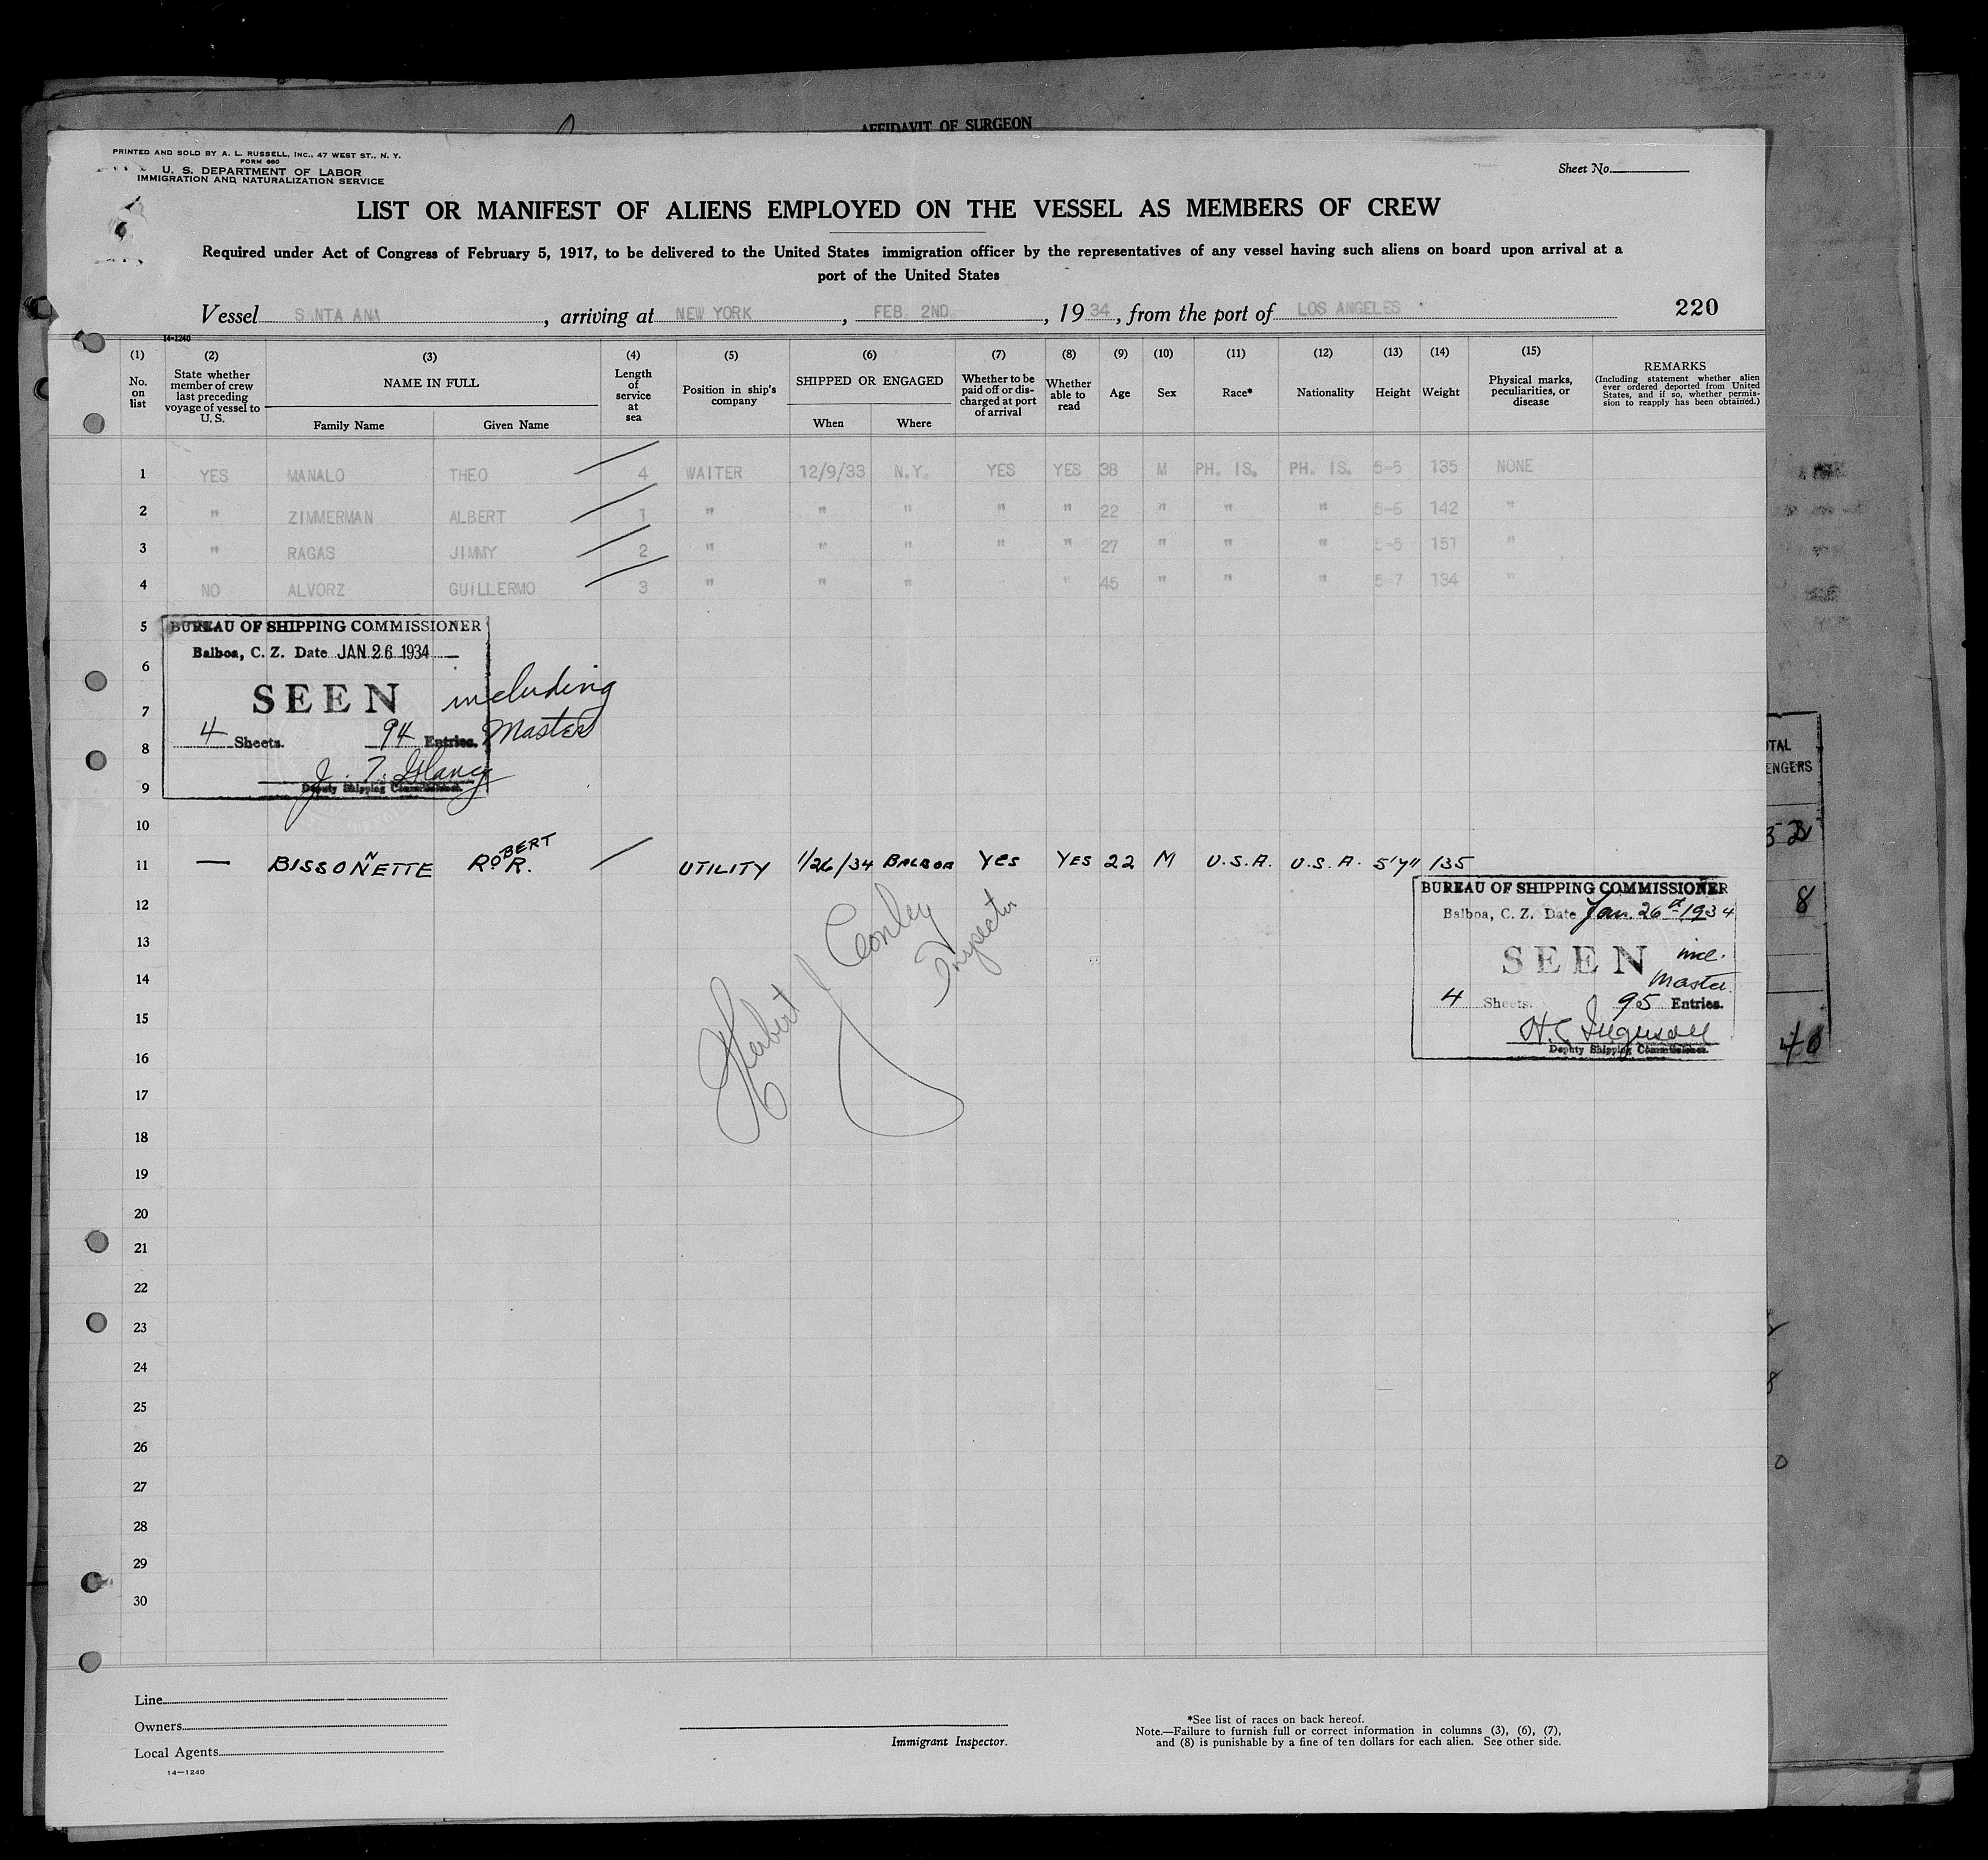 AFFIDAVIT OF SURGEON
PRINTED AND SOLD BY A. L. RUSSELL, INC., 47 WEST ST., N. Y.
FORM 680
U. S. DEPARTMENT OF LABOR
IMMIGRATION AND NATURALIZATION SERVICE
Sheet No.
LIST OR MANIFEST OF ALIENS EMPLOYED ON THE VESSEL AS MEMBERS OF CREW
Required under Act of Congress of February 5, 1917, to be delivered to the United States immigration officer by the representatives of any vessel having such aliens on board upon arrival at a
port of the United States
Vessel SANTA ANA, arriving at NEW YORK, FEB. 2ND., 1934, from the port of LOS ANGELES 220
14-1240
(1) (2) (3) (4) (5) (6) (7) (8) (9) (10) (11) (12) (13) (14) (15)
No. on list
State whether member of crew last preceding voyage of vessel to U. S.
NAME IN FULL
Family Name Given Name
Length of service at sea
Position in ship's company
SHIPPED OR ENGAGED
When Where
Whether to be paid off or discharged at port of arrival
Whether able to read
Age Sex Race* Nationality Height Weight
Physical marks, peculiarities, or disease
REMARKS
(Including statement whether alien ever ordered deported from United States, and if so, whether permission to reapply has been obtained.)
1 YES MANALO THEO 4 WAITER 12/9/33 N.Y. YES YES 38 M PH. IS. PH. IS. 5-5 135 NONE
2 " ZIMMERMAN ALBERT 1 " " " " " 22 " " " 5-6 142 "
3 " RAGAS JIMMY 2 " " " " " 27 " " " 5-5 151 "
4 NO ALVORZ GUILLERMO 3 " " " " " 45 " " " 5-7 134 "
5
6
7
8
9
10
BUREAU OF SHIPPING COMMISSIONER
Balboa, C. Z. Date JAN 26 1934
SEEN including
4 Sheets. 94 Entries. Master
Deputy Shipping Commissioner.
11 — BISSONNETTE ROBERT R. UTILITY 1/26/34 BALBOA Yes YES 22 M U.S.A. U.S.A. 5'7" 135
12
13
14
15
16
17
18
19
20
21
22
23
24
25
26
27
28
29
30
BUREAU OF SHIPPING COMMISSIONER
Balboa, C. Z. Date Jan. 26th 1934
SEEN inc.
Master
4 Sheets. 95 Entries.
Deputy Shipping Commissioner.
Herbert J Conley
Inspector
Line
Owners
Local Agents
14—1240
Immigrant Inspector.
*See list of races on back hereof.
Note.—Failure to furnish full or correct information in columns (3), (6), (7),
and (8) is punishable by a fine of ten dollars for each alien. See other side.
8